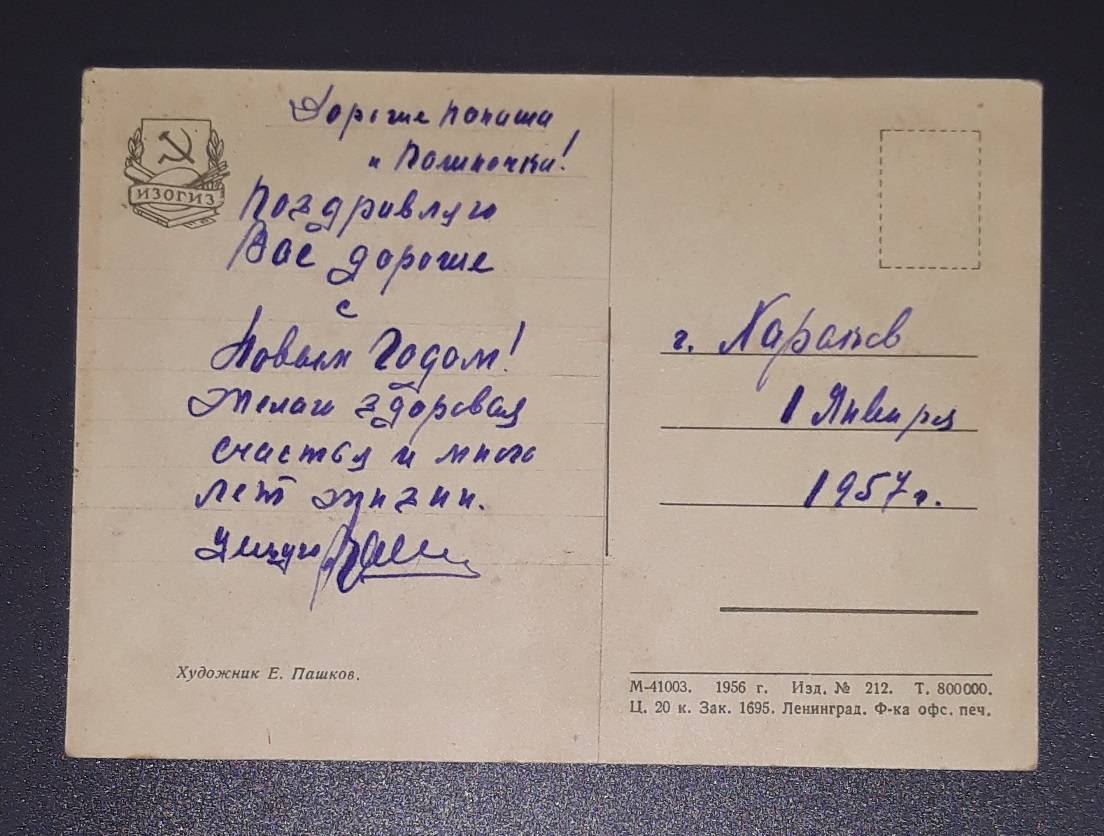 ИЗОГИЗ
Дорогие папаша
и Полиночка!
Поздравляю
Вас дорогие
с
Новым Годом!
Желаю здоровья
счастья и много
лет жизни.
Целую
Художник Е. Пашков.
г. Харьков
1 Января
1957 г.
М-41003. 1956 г. Изд. № 212. Т. 800000.
Ц. 20 к. Зак. 1695. Ленинград. Ф-ка офс. печ.